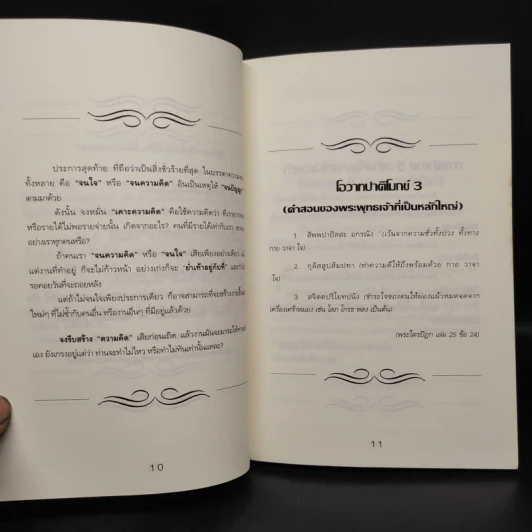 ประการสุดท้าย ที่ถือว่าเป็นสิ่งชั่วร้ายที่สุด ในบรรดาความจน
ทั้งหลาย คือ "จนใจ" หรือ "จนความคิด" อันเป็นเหตุให้ "จนปัญญา"
ตามมาด้วย
ดังนั้น จงหมั่น "เคาะความคิด" คือใช้ความคิดว่า ที่เรายากจน
หรือรายได้ไม่พอรายจ่ายนั้น เกิดจากอะไร? คนที่มีรายได้เท่ากับเรา เขา
อย่างเราทุกคนหรือ?
ถ้าคนเรา "จนความคิด" หรือ "จนใจ" เสียเพียงอย่างเดียว
แต่งานที่ทำอยู่ ก็จะไม่ก้าวหน้า อย่างเก่งก็จะ "ย่ำเท้าอยู่กับที่" และ
รอคอยวันที่จะถอยหลัง
แต่ถ้าไม่จนใจเพียงประการเดียว ก็อาจสามารถที่จะสร้างงาน
ใหม่ๆ ที่ไม่ซ้ำกับคนอื่น หรืองานอื่นๆ ที่มีอยู่แล้วด้วย
จงรีบสร้าง "ความคิด" เสียก่อนเถิด แล้วงานมันจะมารมให้ทำ
เอง ยังเกรงอยู่แต่ว่า ท่านจะทำไม่ไหว หรือทำไม่ทันเท่านั้นแหละ?
10
โอวาทปาติโมกข์ 3
(คำสอนของพระพุทธเจ้าที่เป็นหลักใหญ่)
1. สัพพปาปัสสะ อกรณัง (เว้นจากความชั่วทั้งปวง ทั้งทาง
กาย วาจา ใจ)
2. กุสลัสสูปสัมปทา (ทำความดีให้ถึงพร้อมด้วย กาย วาจา
ใจ)
3. สจิตตปริโยทปนัง (ชำระใจของตนให้ผ่องแผ้วหมดจดจาก
เครื่องเศร้าหมอง เช่น โลภ โกรธ หลง เป็นต้น)
(พระไตรปิฎก เล่ม 25 ข้อ 24)
11